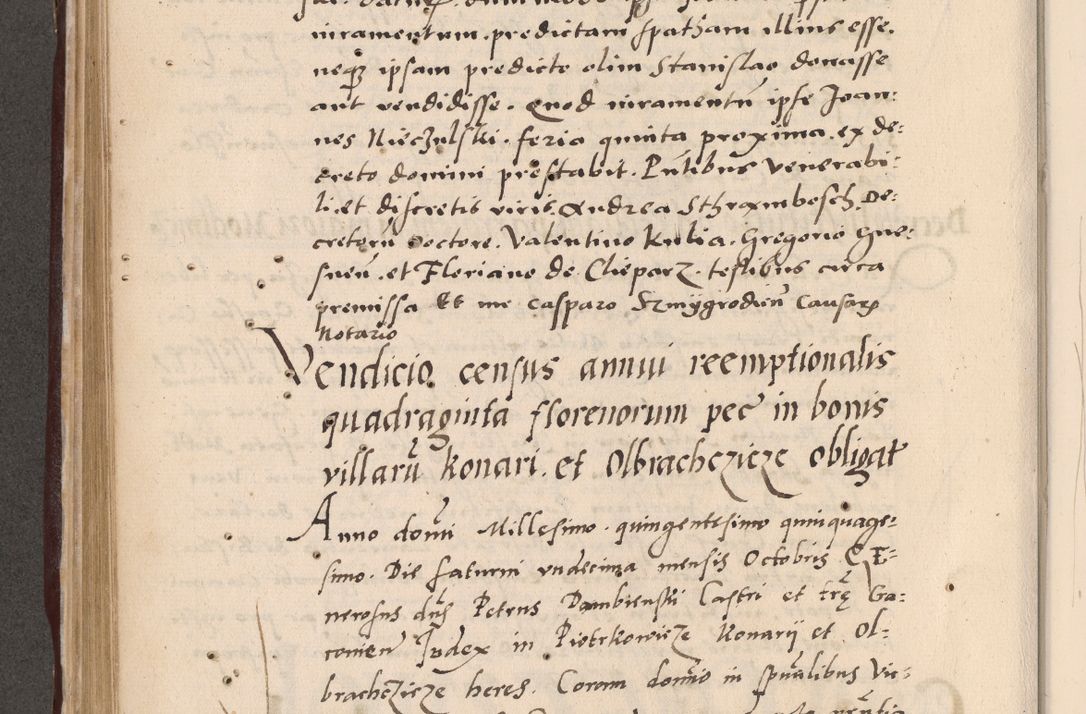 iuramentum. predictam spatham illius esse.
neqꝫ ipsam predicto olim Stanislao donasse
aut vendidisse. Quod iuramentū ipse Joan:
nes Nieczulski. feria quinta proxima. ex de:
creto domini prestabit. Pn̄tibus Venerabi:
li. et discretis viris. Andrea Sthrambosch. De:
cretorū Doctore. Valentino Kulia. Gregorio Gne:
snen̄. et Floriano de Clieparz. testibus circa
premissa Et me Casparo Szmygrodien̄ Causarꝝ
Notario
Vendicio census annui reemptionalis
quadraginta florenorum pec̄ in bonis
villarū Konari. et Olbrachczicze obligat̄
Anno domī Millesimo. quingentesimo quinquage:
simo. Die saturni undecima mensis Octobris. GE:
nerosus dn̄s Petrus Dambienski Castri et trę Ga:
comen̄ Judex in Piotrkowicze Konarij et Ol:
brachczicze heres. Coram domīo in sp̄ualibus Vic: